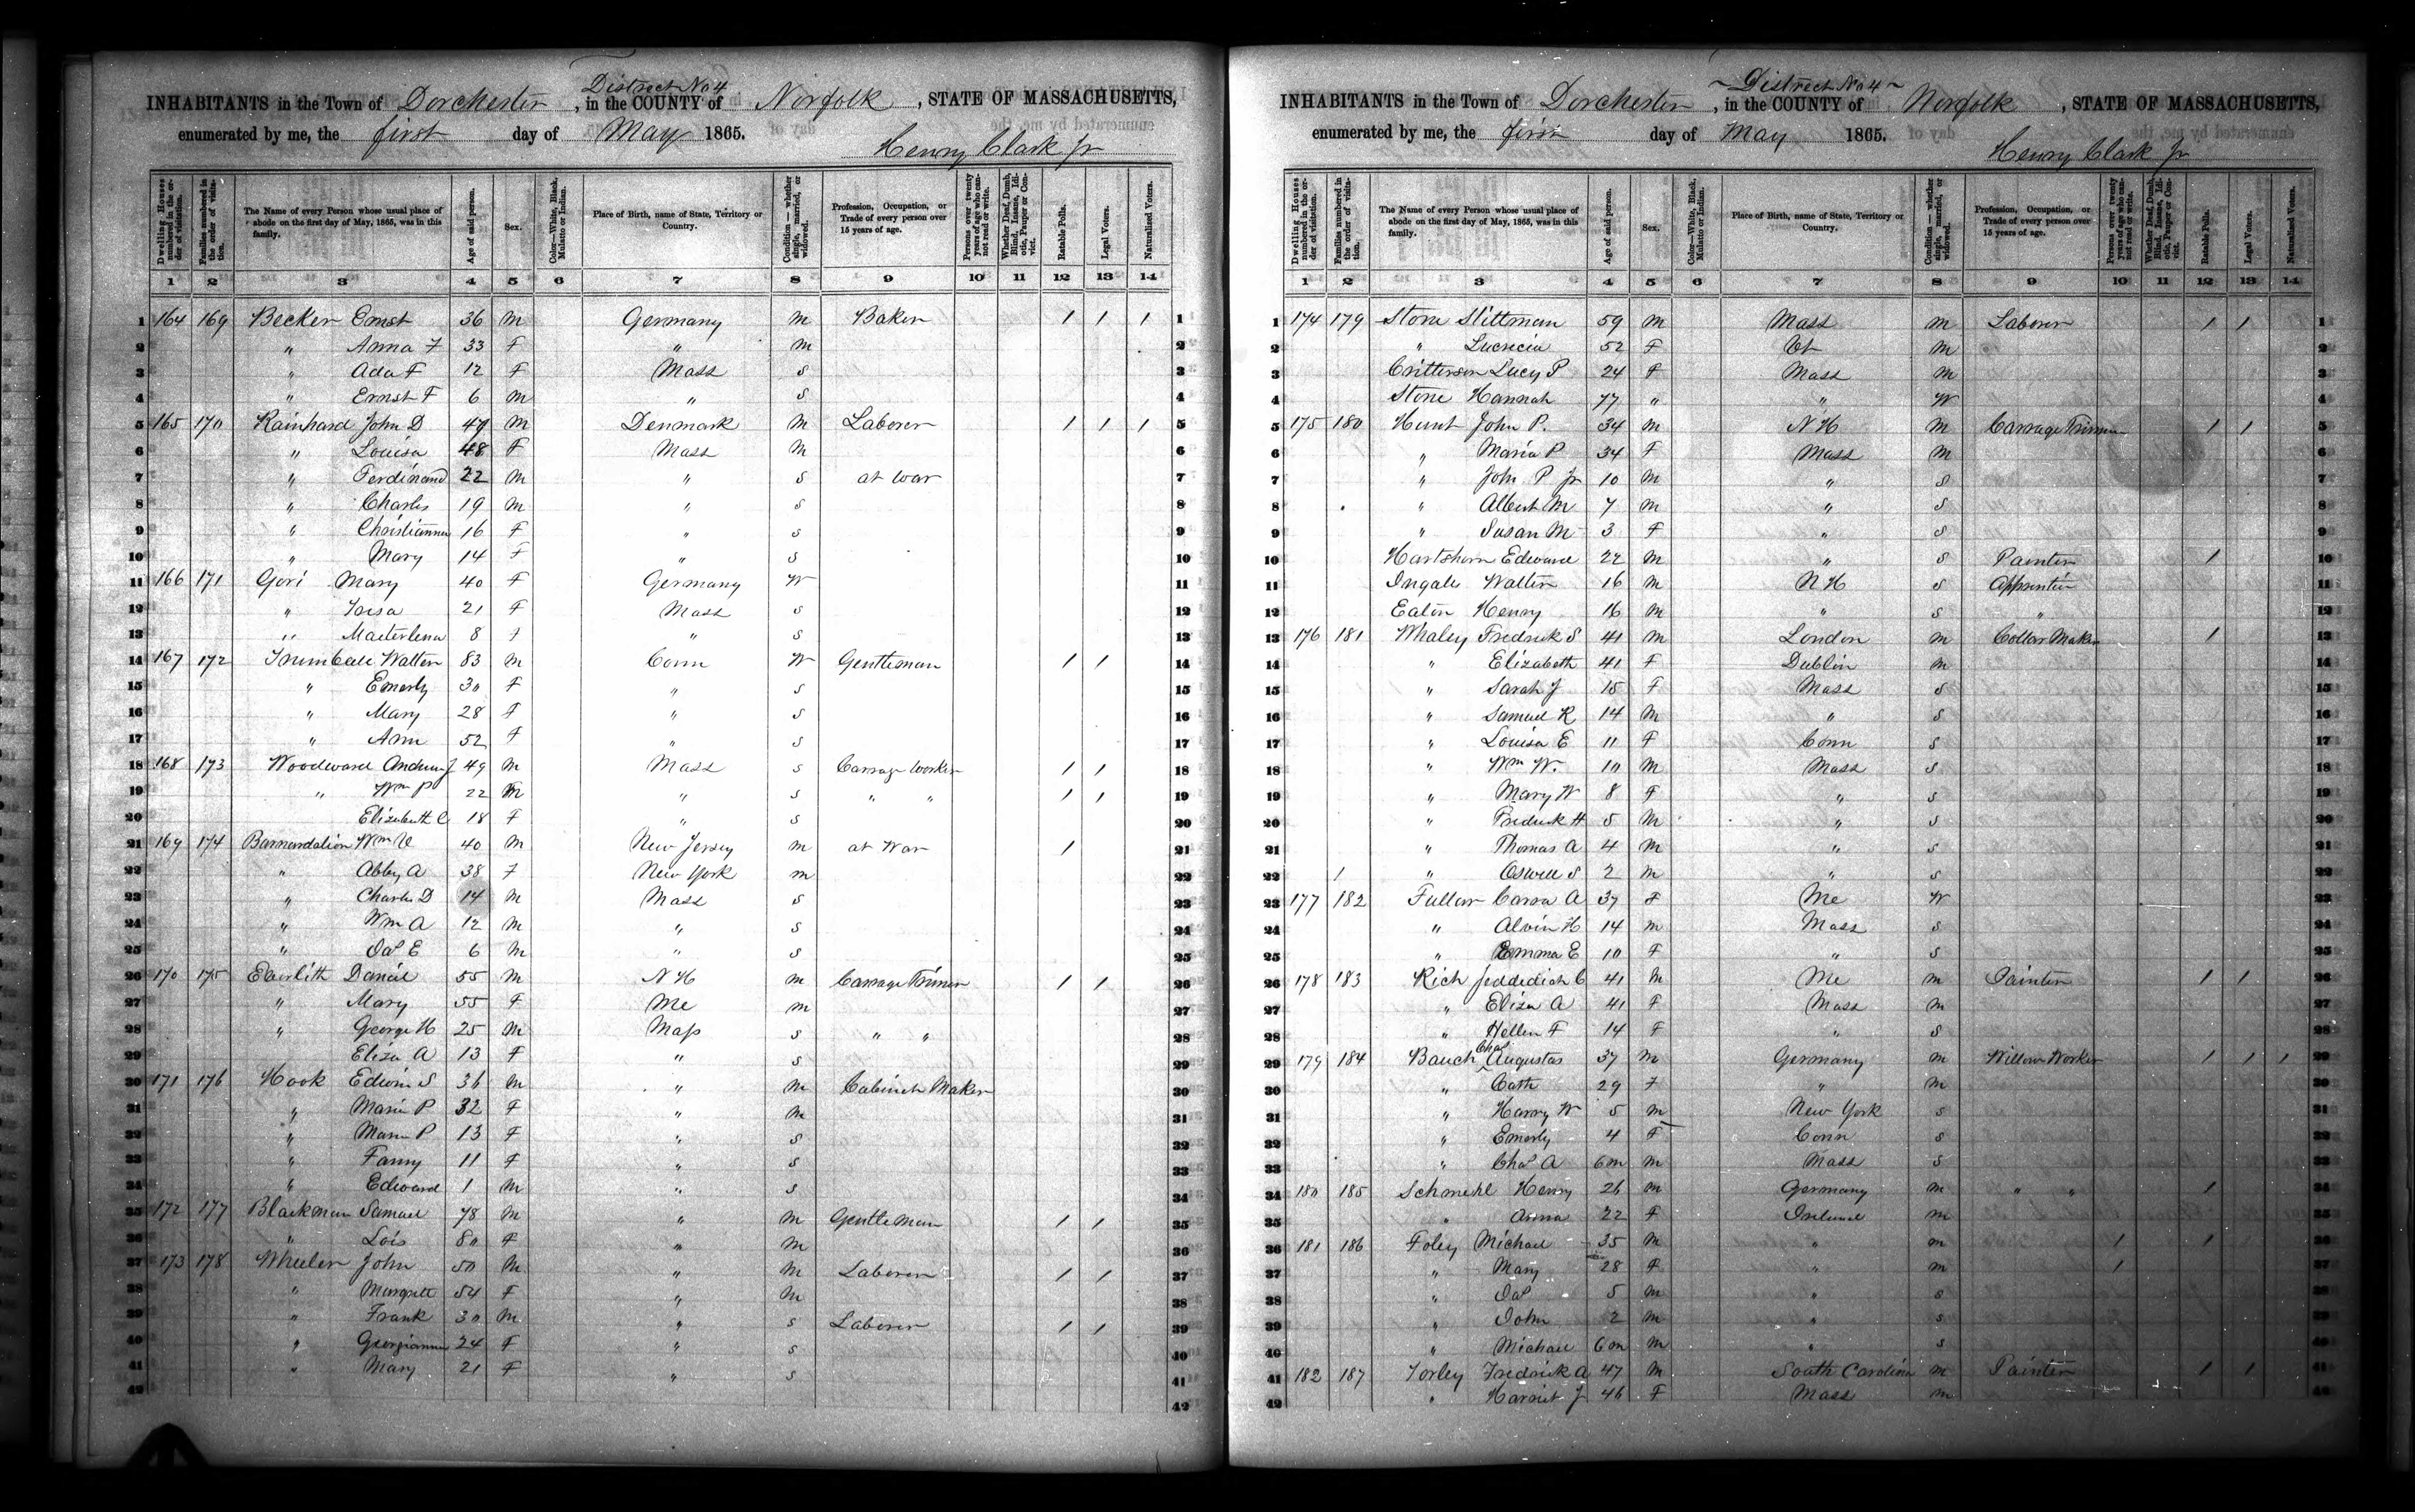 District No 4
INHABITANTS in the Town of Dorchester, in the COUNTY of Norfolk, STATE OF MASSACHUSETTS,
enumerated by me, the first day of May 1865.
Henry Clark Jr
Dwelling Houses numbered in the order of visitation. Families numbered in the order of visitation. The Name of every Person whose usual place of abode on the first day of May, 1865, was in this family. Age of said person. Sex. Color—White, Black, Mulatto or Indian. Place of Birth, name of State, Territory or Country. Condition—whether single, married, or widowed. Profession, Occupation, or Trade of every person over 15 years of age. Persons over twenty years of age who cannot read or write. Whether Deaf, Dumb, Blind, Insane, Idiotic, Pauper or Convict. Ratable Polls. Legal Voters. Naturalized Voters.
1 2 3 4 5 6 7 8 9 10 11 12 13 14
1 164 169 Becker Ernst 36 M Germany M Baker 1 1 1 1
2 " Anna F 33 F " M 2
3 " Ada F 12 F Mass S 3
4 " Ernst F 6 M " S 4
5 165 170 Rainhard John D 47 M Denmark M Laborer 1 1 1 5
6 " Louisa 48 F Mass M 6
7 " Ferdinand 22 M " S at War 7
8 " Charles 19 M " S 8
9 " Christianna 16 F " S 9
10 " Mary 14 F " S 10
11 166 171 Gori Mary 40 F Germany W 11
12 " 21 F Mass S 12
13 " 8 F " S 13
14 167 172 Walter 83 M Conn W Gentleman 1 1 14
15 " Emerly 30 F " S 15
16 " Mary 28 F " S 16
17 " Ann 52 F " S 17
18 168 173 Woodward Andrew J 49 M Mass S Carrage Worker 1 1 18
19 " Wm P 22 M " S " " 1 1 19
20 Elizabeth C 18 F " S 20
21 169 174 Wm V 40 M New Jersey M at War 1 21
22 " Abby A 38 F New York M 22
23 " Charles D 14 M Mass S 23
24 " Wm A 12 M " S 24
25 " E 6 M " S 25
26 170 175 Daniel 55 M N H M Carrage Trimer 1 1 26
27 " Mary 55 F Me M 27
28 " George H 25 M Mass S " " 28
29 Eliza A 13 F " S 29
30 171 176 Hook Edwin S 36 M " M Cabinet Maker 30
31 " Maria P 32 F " M 31
32 " Maria P 13 F " S 32
33 " Fanny 11 F " S 33
34 " Edward 1 M " S 34
35 172 177 Blackman Samuel 78 M " M Gentleman 1 1 35
36 " Lois 80 F " M 36
37 173 178 Wheeler John 50 M " M Laborer 1 1 37
38 " 54 F " M 38
39 " Frank 30 M " S Laborer 1 1 39
40 " Georgianna 24 F " S 40
41 " Mary 21 F " S 41
42 42
~ District No 4 ~
INHABITANTS in the Town of Dorchester, in the COUNTY of Norfolk, STATE OF MASSACHUSETTS,
enumerated by me, the first day of May 1865.
Henry Clark Jr
Dwelling Houses numbered in the order of visitation. Families numbered in the order of visitation. The Name of every Person whose usual place of abode on the first day of May, 1865, was in this family. Age of said person. Sex. Color—White, Black, Mulatto or Indian. Place of Birth, name of State, Territory or Country. Condition—whether single, married, or widowed. Profession, Occupation, or Trade of every person over 15 years of age. Persons over twenty years of age who cannot read or write. Whether Deaf, Dumb, Blind, Insane, Idiotic, Pauper or Convict. Ratable Polls. Legal Voters. Naturalized Voters.
1 2 3 4 5 6 7 8 9 10 11 12 13 14
1 174 179 Stone Stittman 59 M Mass M Laborer 1 1 1
2 " Lucrecia 52 F Vt M 2
3 Critterson Lucy P 24 F Mass M 3
4 Stone Hannah 77 " " W 4
5 175 180 Hunt John P. 34 M N H M Carrage Trimer 1 1 5
6 " Maria P 34 F Mass M 6
7 " John P Jr 10 M " S 7
8 " Albert M 7 M " S 8
9 " Susan M 3 F " S 9
10 Hartshorn Edward 22 M " S Painter 1 10
11 Ingals Walter 16 M N H S Apprentice 11
12 Eaton Henry 16 M " S " 12
13 176 181 Whaley Fredrick S 41 M London M Collar Maker 1 13
14 " Elizabeth 41 F Dublin M 14
15 " Sarah J 15 F Mass S 15
16 " Samuel R 14 M " S 16
17 " Louisa E 11 F Conn S 17
18 " Wm W. 10 M Mass S 18
19 " Mary W 8 F " S 19
20 " Fredrick H 5 M " S 20
21 " Thomas A 4 M " S 21
22 " Oswell S 2 M " S 22
23 177 182 Fuller A 37 F Me W 23
24 " Alvin H 14 M Mass S 24
25 " Emma E 10 F " S 25
26 178 183 Rich Jeddediah C 41 M Me M Painter 1 1 26
27 " Eliza A 41 F Mass M 27
28 " Hellen F 14 F " S 28
29 179 184 Bauch Chas Augustas 37 M Germany M Willow Worker 1 1 1 29
30 " Cath 29 F " M 30
31 " Harry W 5 M New York S 31
32 " Emerly 4 F Conn S 32
33 " Chas A 6m M Mass S 33
34 180 185 Schmehl Henry 26 M Germany M " " 1 34
35 " Anna 22 F Ireland M 35
36 181 186 Foley Michael 35 M " M 1 1 36
37 " Mary 28 F " M 1 37
38 " 5 M " S 38
39 " John 2 M " S 39
40 " Michael 6m M " S 40
41 182 187 Torley Fredrick A 47 M South Carolina M Painter 1 1 41
42 " Harriet J 46 F Mass M 42